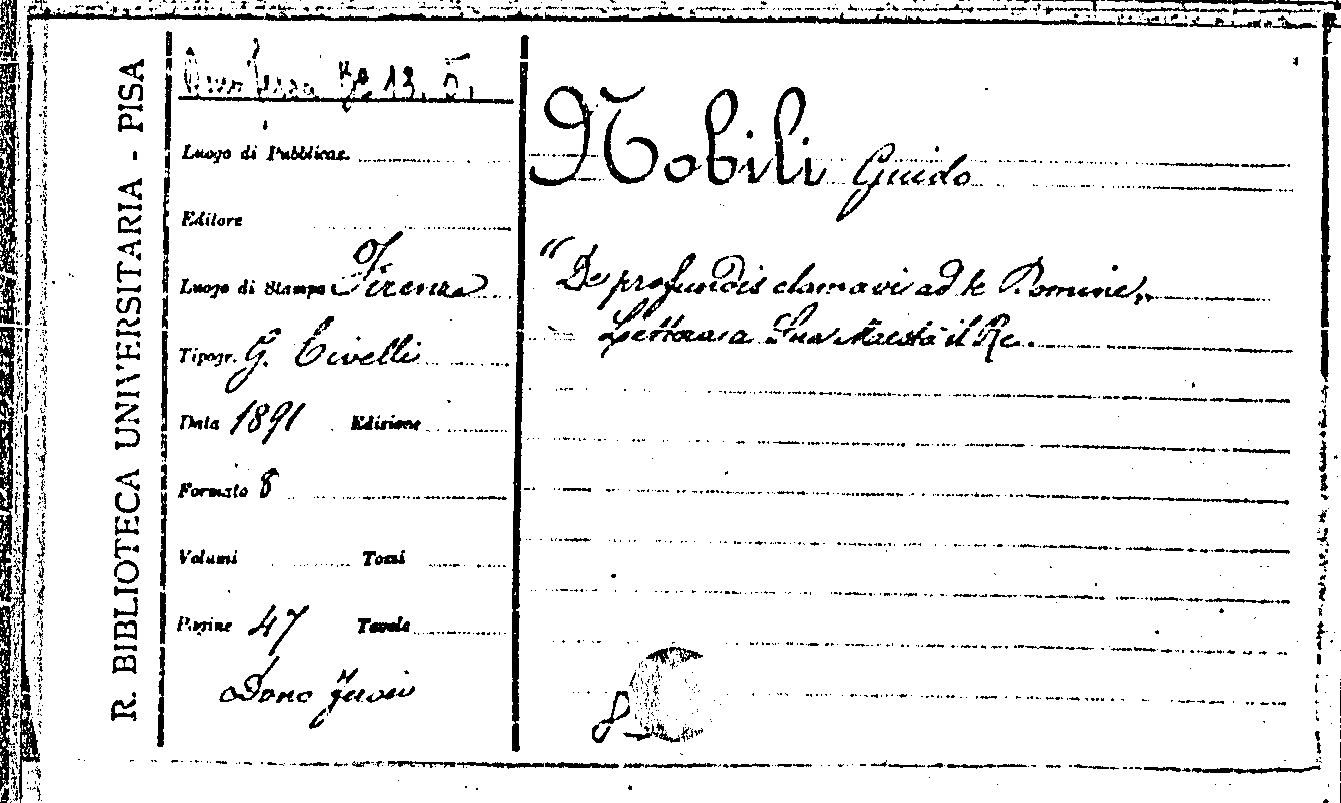 R. BIBLIOTECA UNIVERSITARIA - PISA
13. 5.
Luogo di Pubblicaz.
Editore
Luogo di Stampa Firenze
Tipogr. G. Civelli
Data 1891 Edizione
Formato 8
Volumi Tomi
Pagine 47 Tavole
Dono
Nobili Guido
"De profundis clamavi ad te Domine„
Lettera a Sua Maestà il Re.